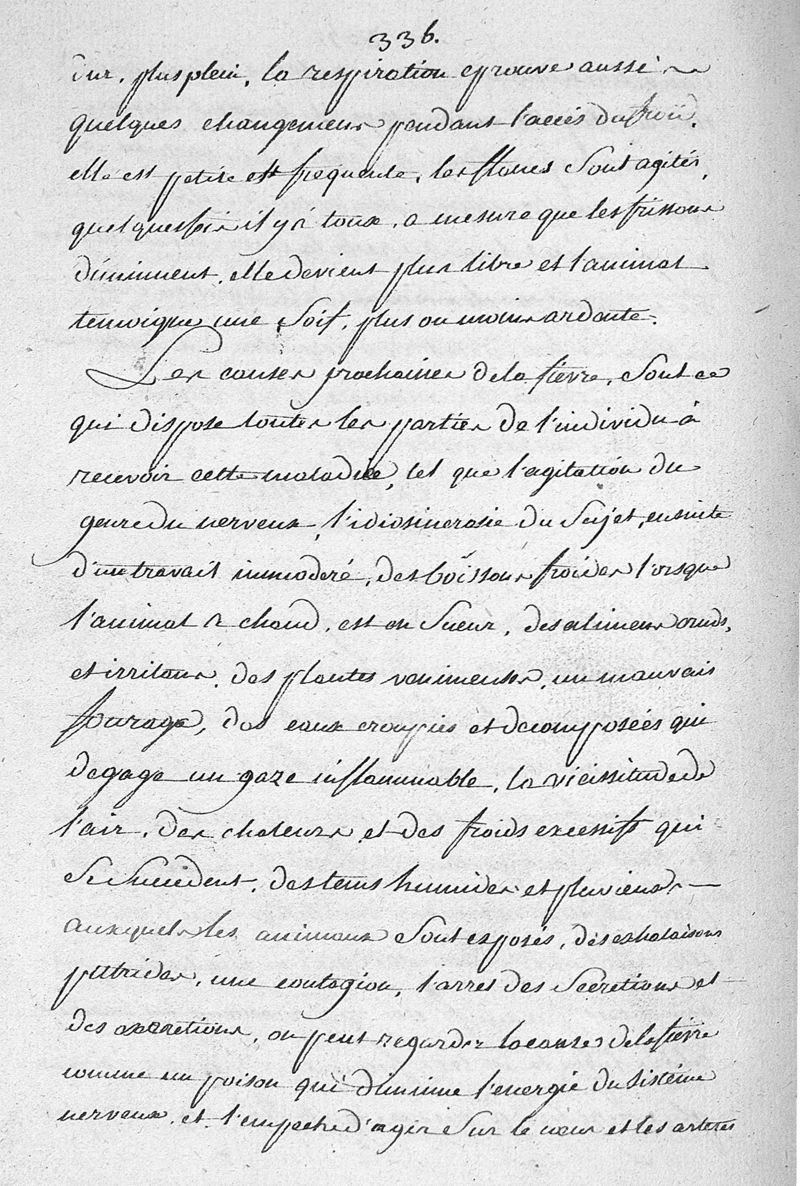 336.
dur, plus plein, la respiration eprouve aussi
quelques changemens pendant l'accés du froid.
elle est petite est frequente, les flancs sont agités,
quelquesfois il y a toux, a mesure que les frissons
diminuent, elle devient plus libre et l'animal
temoigne une soif, plus ou moins ardente.
Les causes prochaines de la fievre, sont ce
qui dispose toutes les parties de l'individu à
recevoir cette maladie, tel que l'agitation du
genre du nerveux, l'idiosincrasie du sujet, ensuite
d'un travail immoderé, des boissons froides lorsque
l'animal à chaud, est en sueur, des alimens cruds,
et irritans, des plantes venimeuses, un mauvais
fourage, des eaux croupies et decomposées qui
degage un gaze inflammable, la vicissitude de
l'air, des chaleurs et des froids excessifs qui
se succedent, des tems humides et pluvieux,
auxquels les animaux sont exposés, des exhalaisons
putrides, une contagion, l'arret des secretions et
des excretions, on peut regarder la causes de la fievre
comme un poison qui diminue l'energie du sistéme
nerveux, et l'empeche d'agir sur le cœur et les arteres